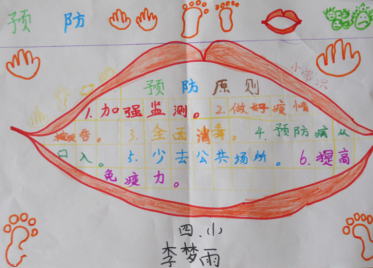 预 防
小常识
预防原则
1.加强监测。2.做好疫情
报告。3.全面消毒。4.预防病从
口入。5.少去公共场所。6.提高
免疫力。
四.小
李梦雨